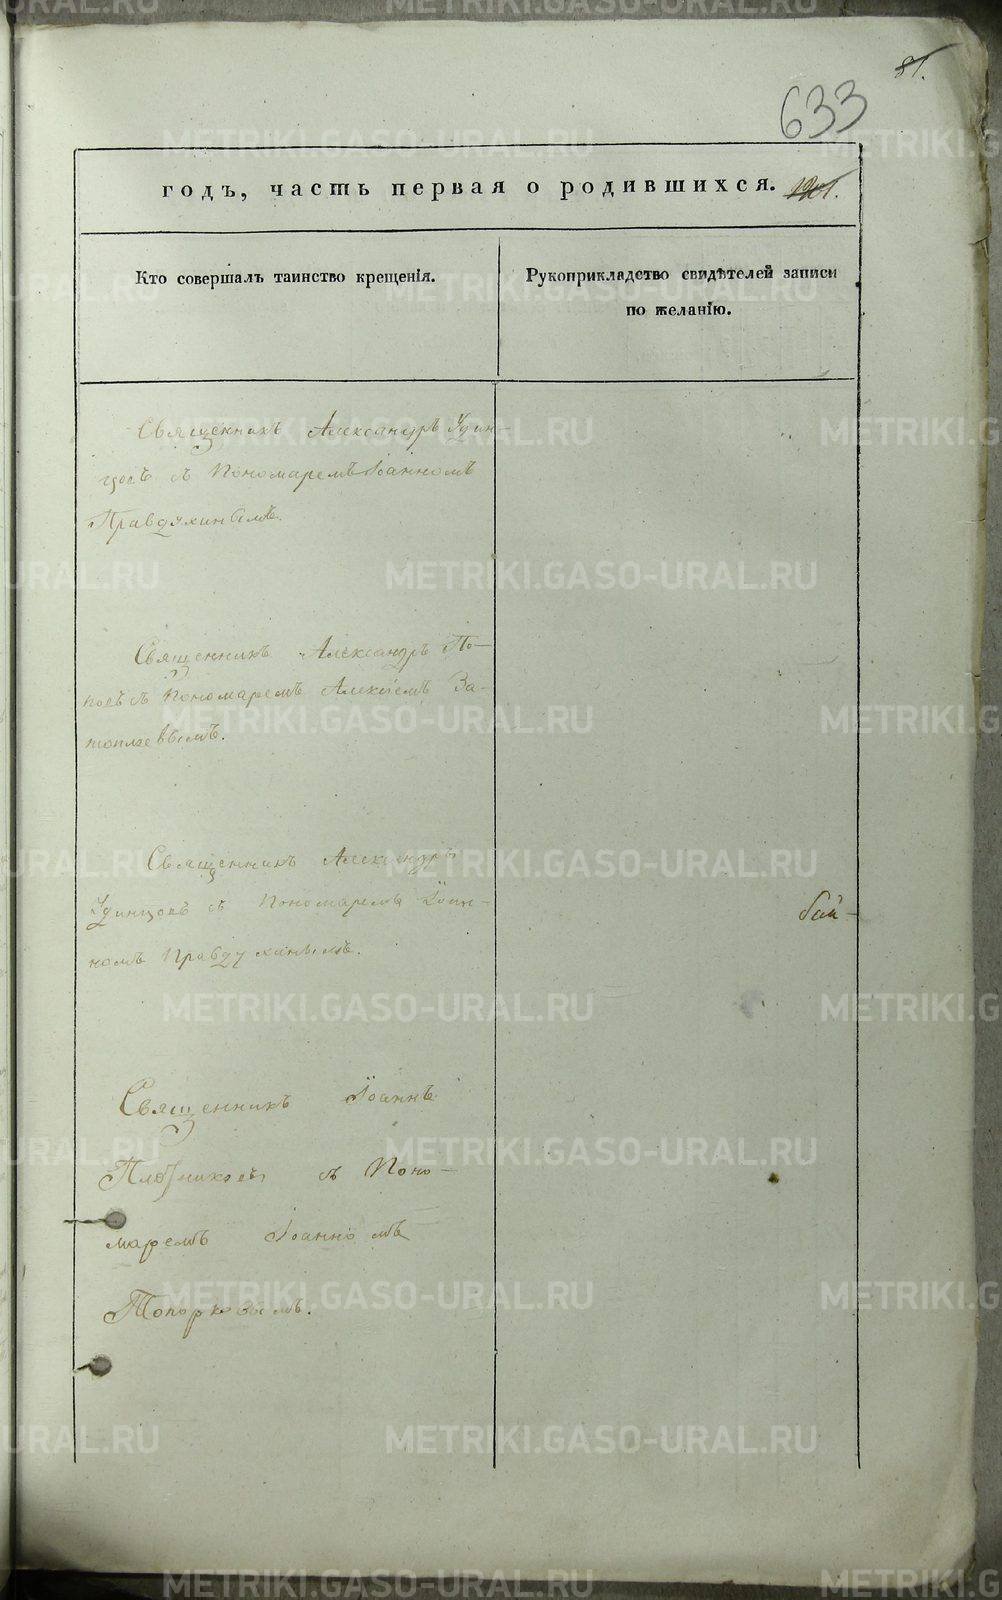 81.
633
годъ, часть первая о родившихся.
Кто совершалъ таинство крещенія.
Рукоприкладство свидѣтелей записи
по желанію.
Священникъ Александръ Удин-
цовъ съ Пономаремъ Іоанномъ
Правдухинымъ.
Священникъ Александръ По-
повъ съ Пономаремъ Алексіемъ За-
топляевымъ.
Священникъ Александръ
Удинцовъ съ Пономаремъ Іоан-
номъ Правдухинымъ.
Священникъ Іоаннъ
Плотниковъ съ Поно-
маремъ Іоанномъ
Топорковымъ.
METRIKI.GASO-URAL.RU